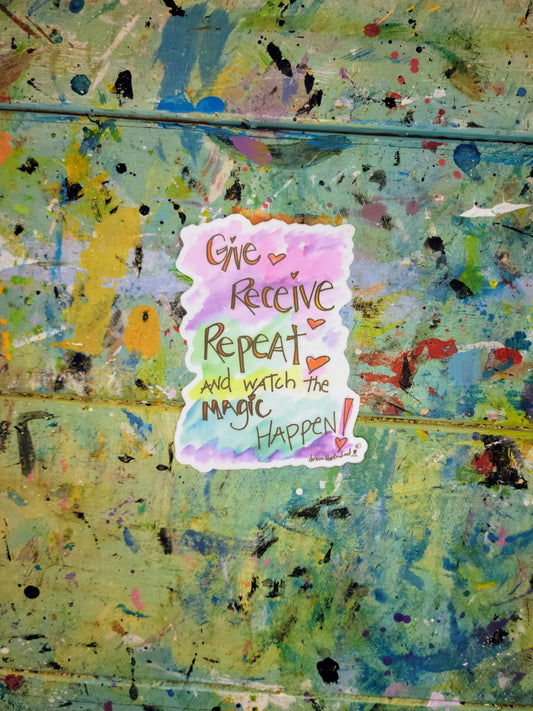 Give
Receive
Repeat
AND WATCH the
MAGiC
HAPPEN!